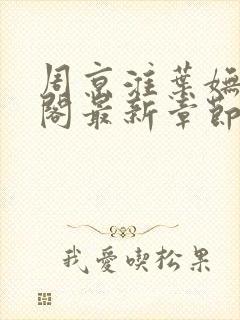 周京淮葉嫵
閣最新章節
我愛喫松果